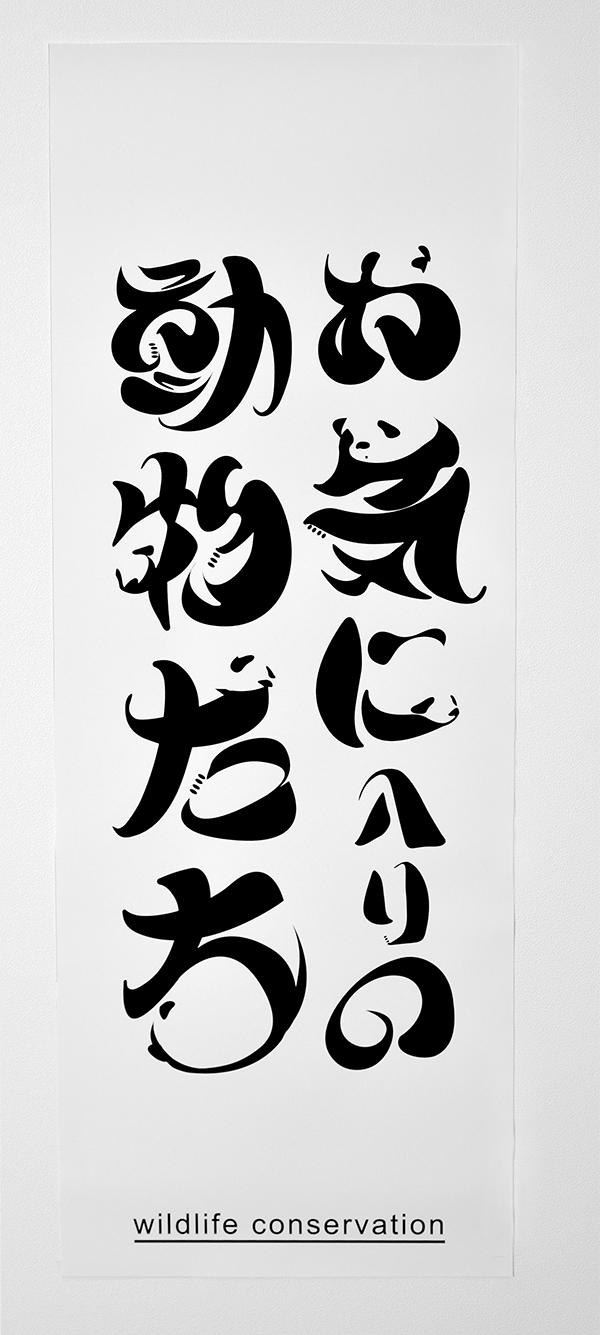 お気に入りの
動物たち
wildlife conservation